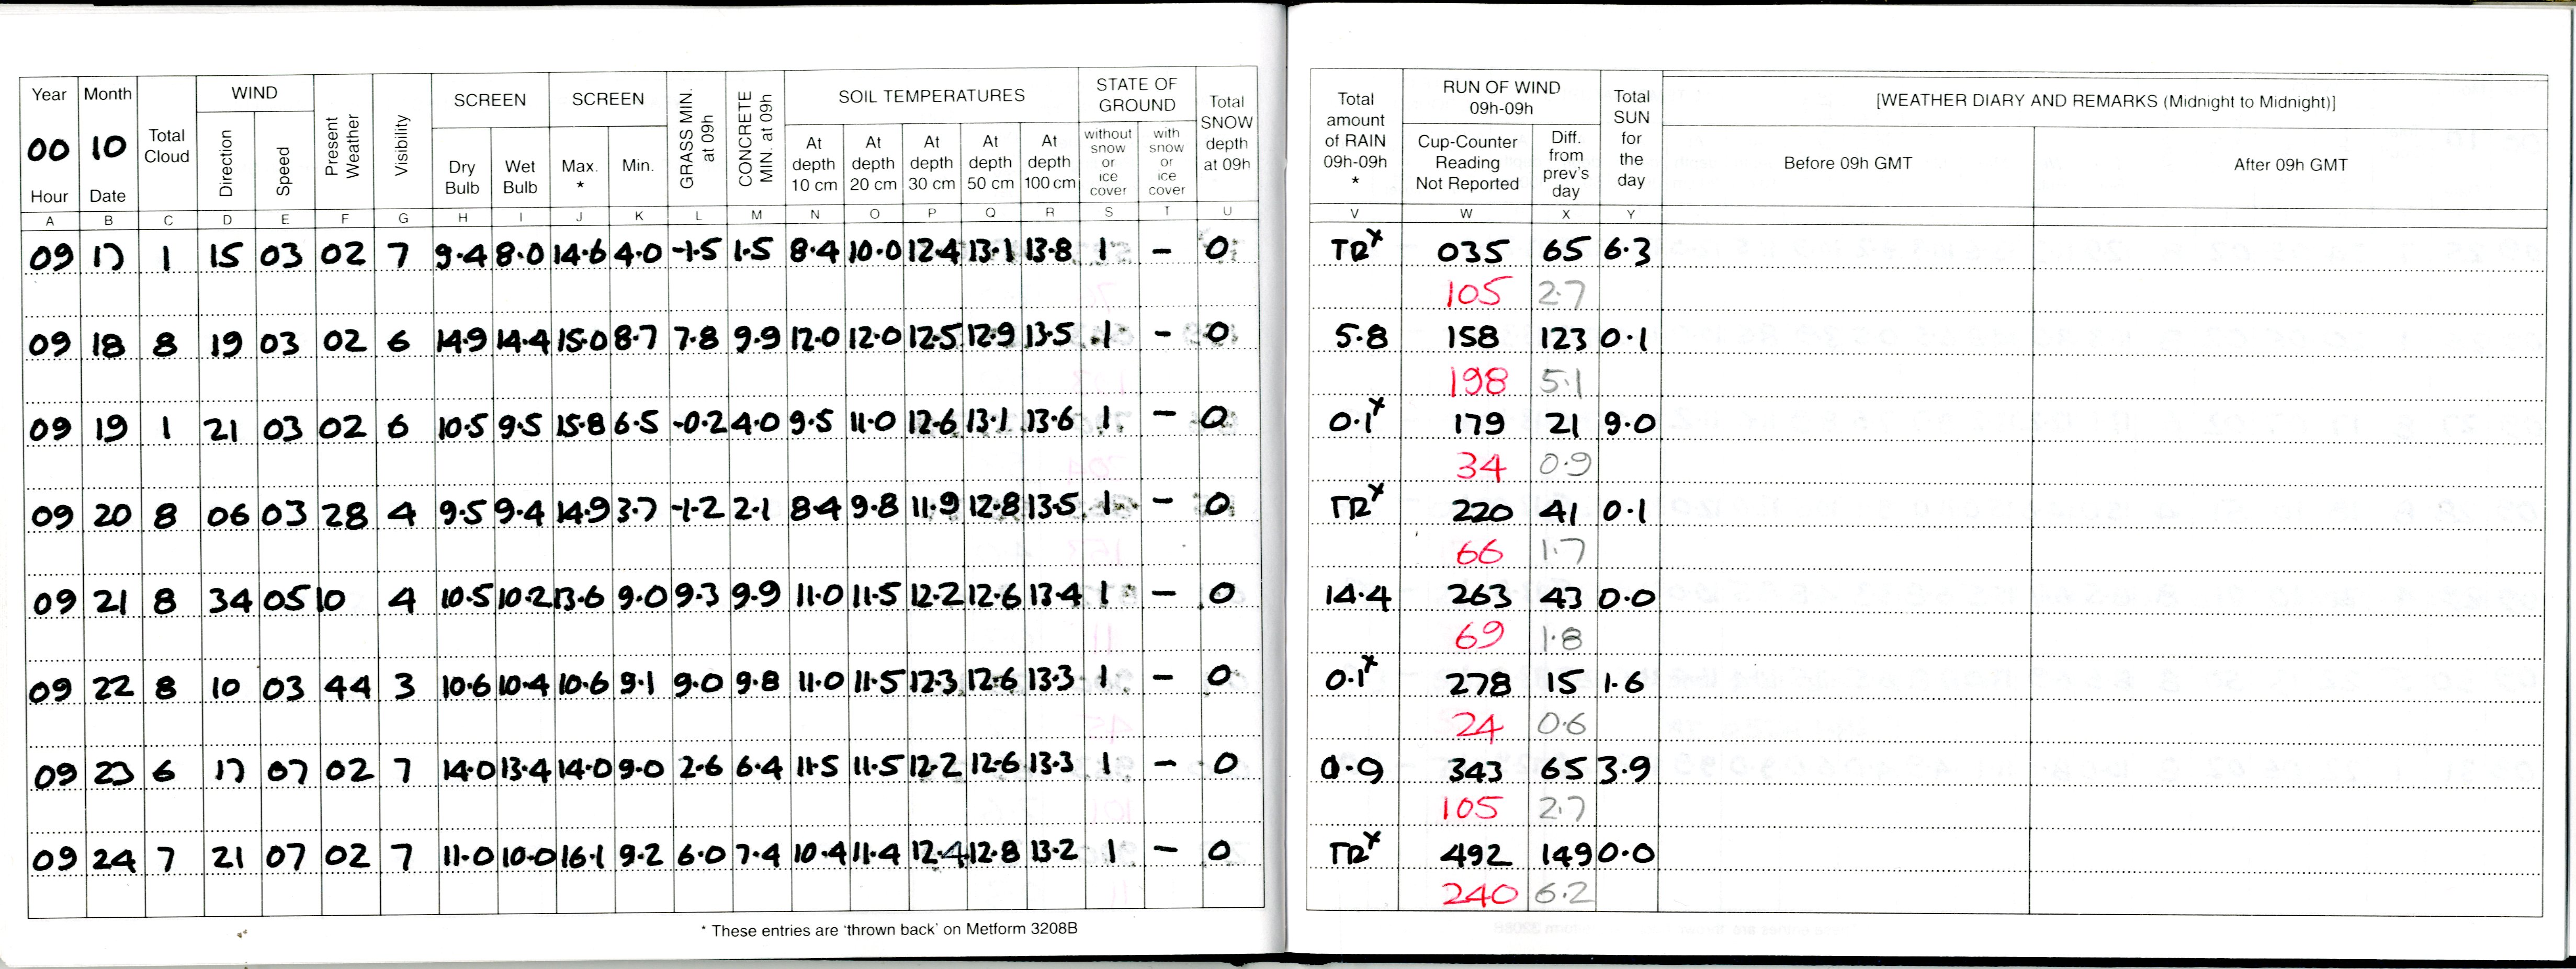 Year Month Total Cloud WIND Present Weather Visibility SCREEN SCREEN GRASS MIN. at 09h CONCRETE MIN. at 09h SOIL TEMPERATURES STATE OF GROUND Total SNOW depth at 09h Total amount of RAIN 09h-09h * RUN OF WIND 09h-09h Total SUN for the day [WEATHER DIARY AND REMARKS (Midnight to Midnight)]
00 10
Hour Date Direction Speed Dry Bulb Wet Bulb Max. * Min. At depth 10 cm At depth 20 cm At depth 30 cm At depth 50 cm At depth 100 cm without snow or ice cover with snow or ice cover Cup-Counter Reading Not Reported Diff. from prev's day Before 09h GMT After 09h GMT
A B C D E F G H I J K L M N O P Q R S T U V W X Y
09 17 1 15 03 02 7 9.4 8.0 14.6 4.0 -1.5 1.5 8.4 10.0 12.4 13.1 13.8 1 - 0 TR x 035 65 6.3
105 2.7
09 18 8 19 03 02 6 14.9 14.4 15.0 8.7 7.8 9.9 12.0 12.0 12.5 12.9 13.5 1 - 0 5.8 158 123 0.1
198 5.1
09 19 1 21 03 02 6 10.5 9.5 15.8 6.5 -0.2 4.0 9.5 11.0 12.6 13.1 13.6 1 - 0 0.1 x 179 21 9.0
34 0.9
09 20 8 06 03 28 4 9.5 9.4 14.9 3.7 -1.2 2.1 8.4 9.8 11.9 12.8 13.5 1 - 0 TR x 220 41 0.1
66 1.7
09 21 8 34 05 10 4 10.5 10.2 13.6 9.0 9.3 9.9 11.0 11.5 12.2 12.6 13.4 1 - 0 14.4 263 43 0.0
69 1.8
09 22 8 10 03 44 3 10.6 10.4 10.6 9.1 9.0 9.8 11.0 11.5 12.3 12.6 13.3 1 - 0 0.1 x 278 15 1.6
24 0.6
09 23 6 17 07 02 7 14.0 13.4 14.0 9.0 2.6 6.4 11.5 11.5 12.2 12.6 13.3 1 - 0 0.9 343 65 3.9
105 2.7
09 24 7 21 07 02 7 11.0 10.0 16.1 9.2 6.0 7.4 10.4 11.4 12.4 12.8 13.2 1 - 0 TR x 492 149 0.0
240 6.2
* These entries are 'thrown back' on Metform 3208B